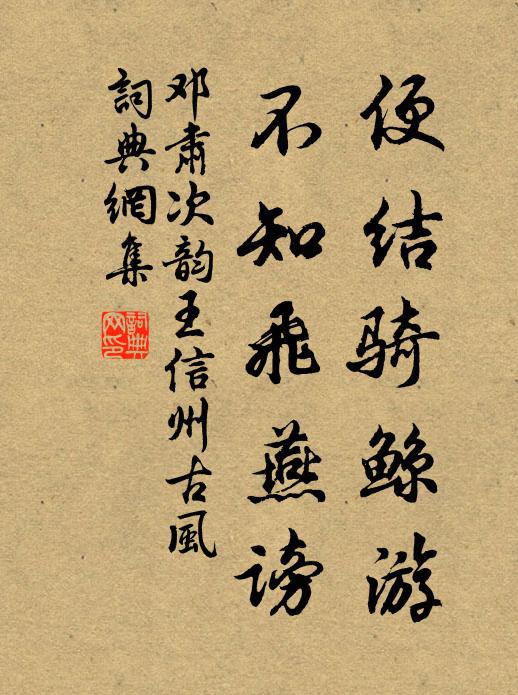 便结骑鲸游
不知飛燕謗
邓肃次韵王信州古風
詞典網集
詞典網印